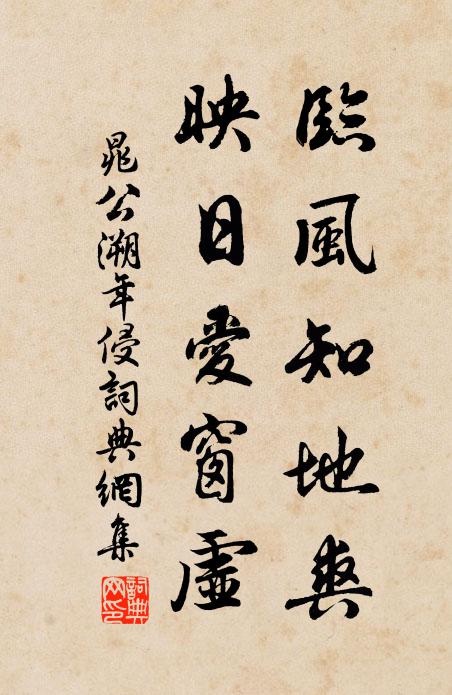 臨風知地爽
映日愛窗虛
晁公溯年侵詞典網集
詞典網印